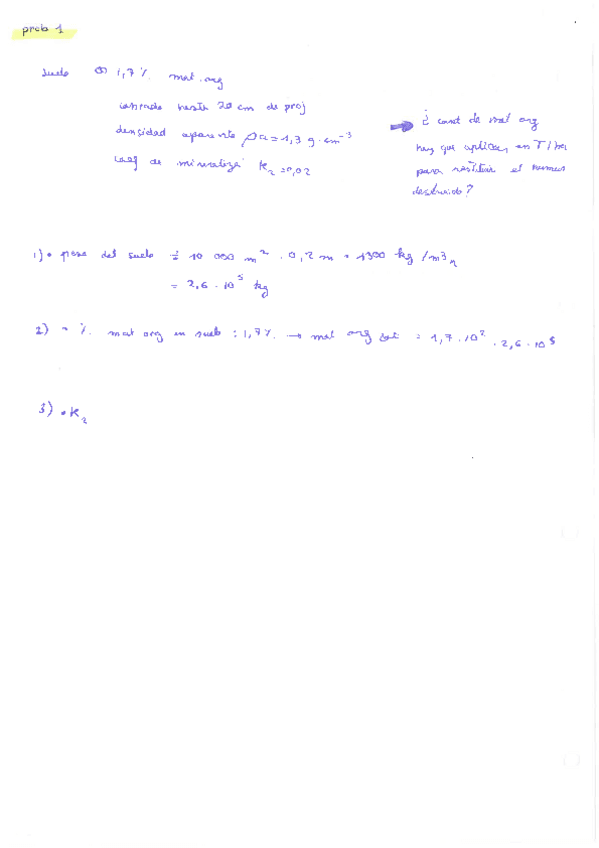 prob 1
suelo 1,7% mat. org
labrado hasta 20 cm de prof
densidad aparente ρa = 1,3 g·cm⁻³
coef de mineraliza K₂ = 0,02
¿ cant de mat org
hay que aplicar, en T/ha
para restituir el humus
destruido?
1) • peso del suelo = 10 000 m² · 0,2 m · 1300 kg/m³
= 2,6 · 10⁵ kg
2) • % mat org en suelo : 1,7% → mat org = 1,7 · 10² · 2,6 · 10⁵
3) • K₂